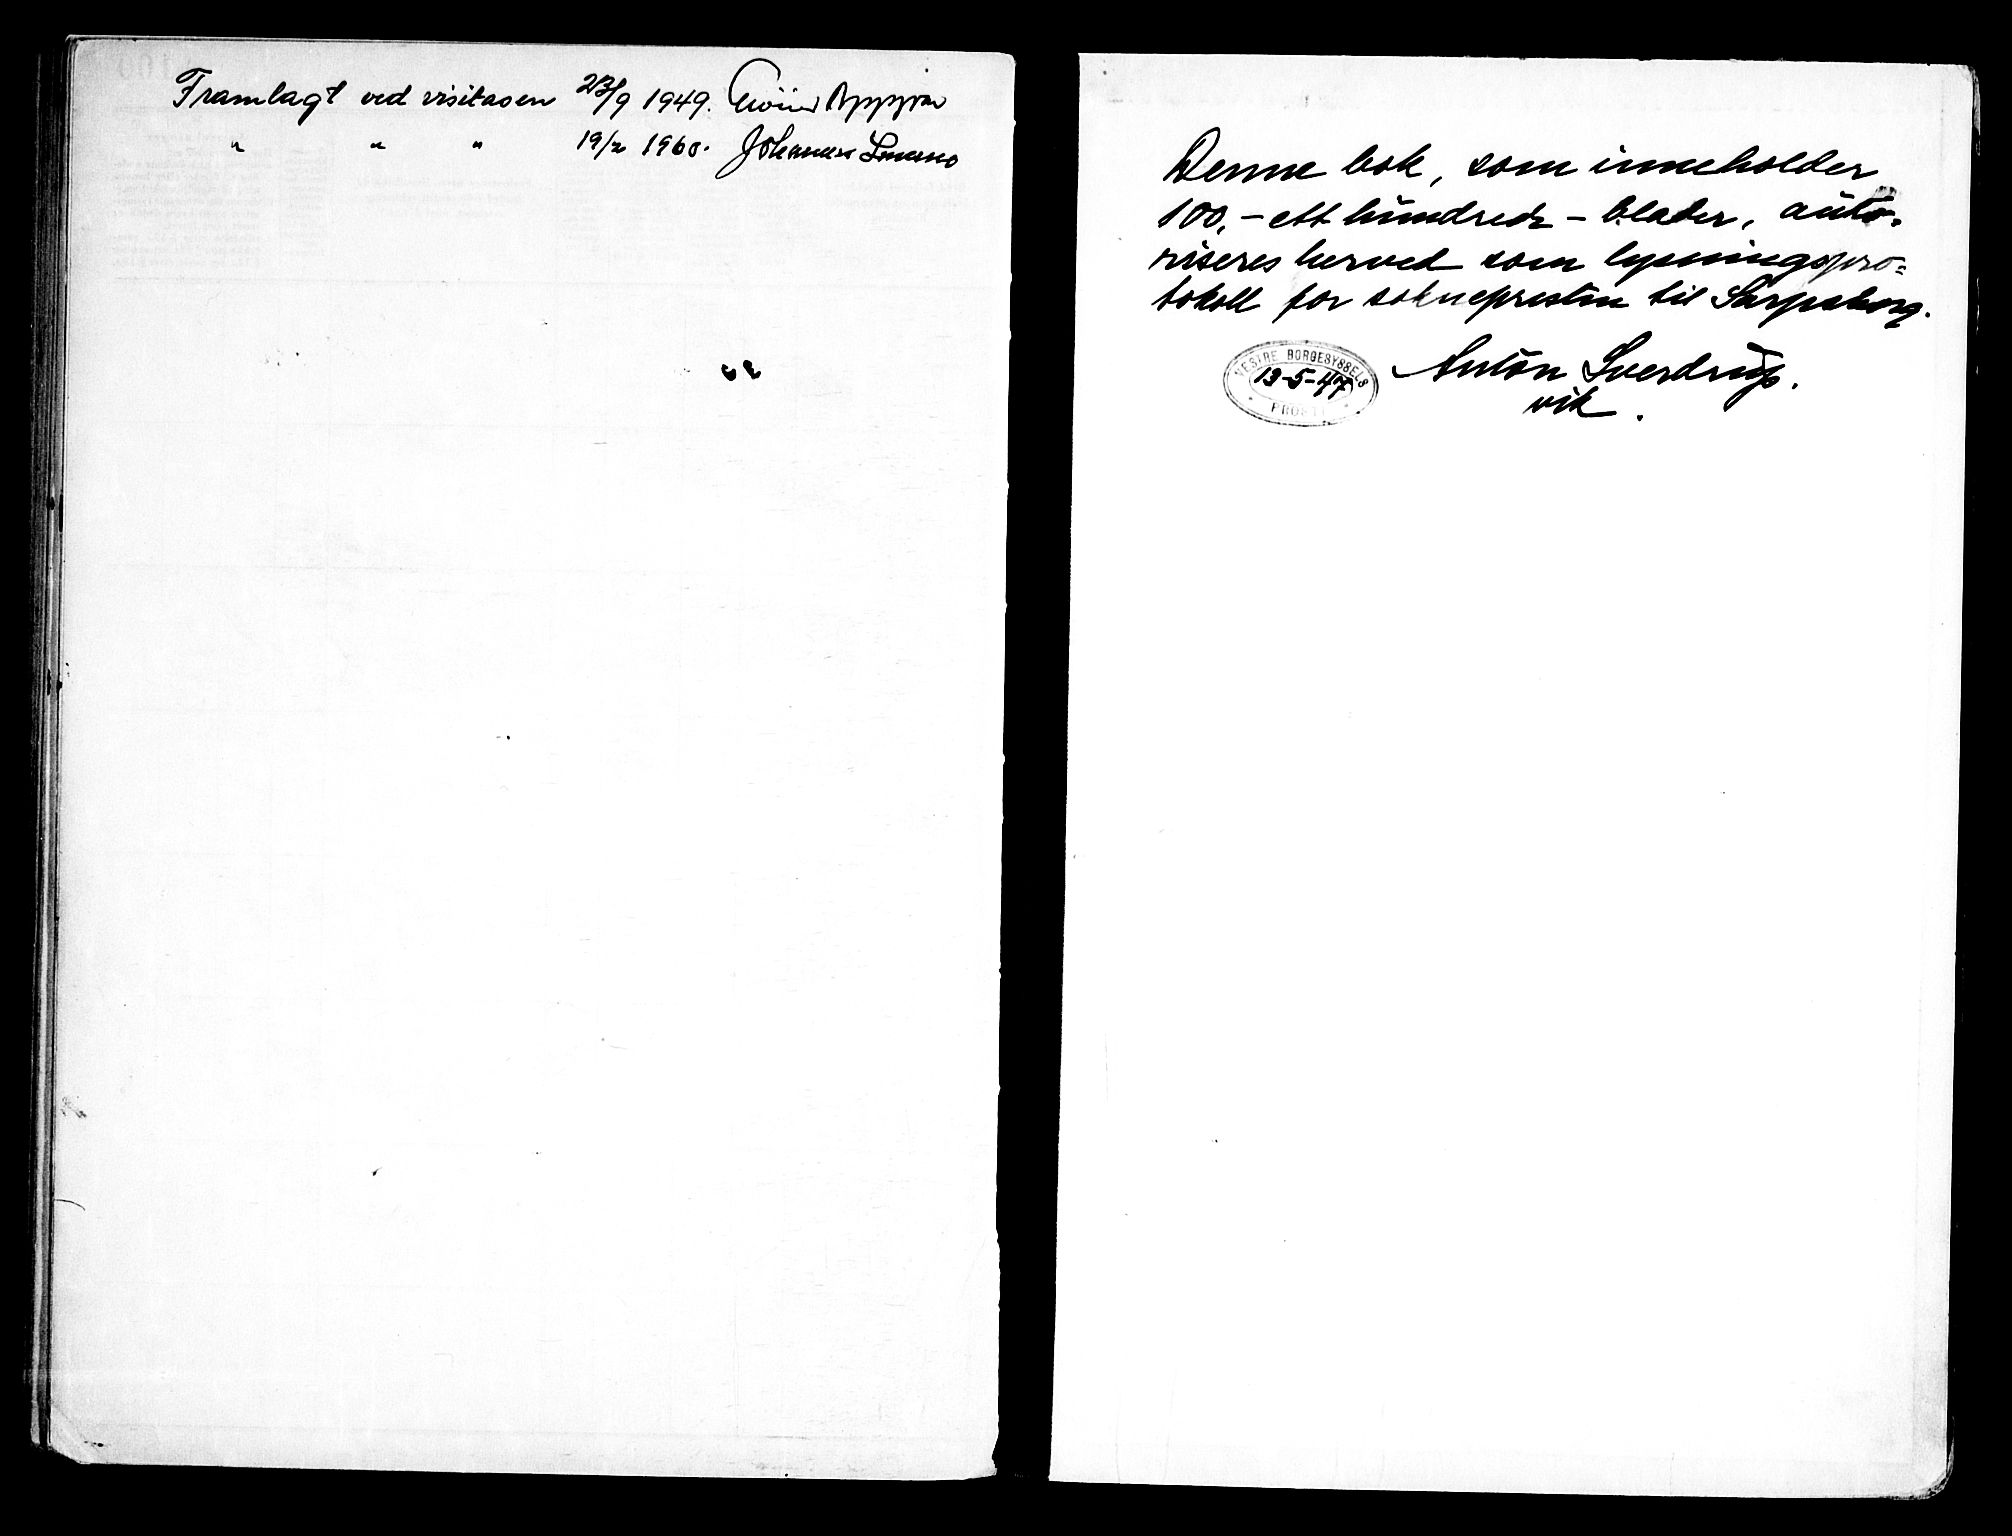 Framlagt ved visitasen 23/9 1949. Eivind Berggrav
" " " 19/2 1960. Johannes Smemo
Denne bok, som inneholder
100,- ett hundrede - blader, auto-
riseres herved som lysningspro=
tokoll for soknepresten til Sarpsborg.
VESTRE BORGESYSSELS
13-5-47
PROSTI
Anton Sverdrup.
vik.